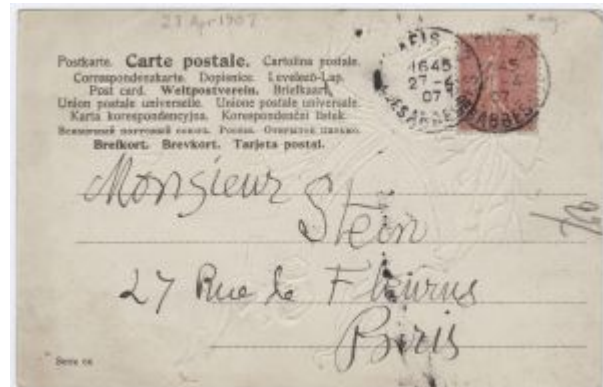 27 Apr 1907
Postkarte. Carte postale. Cartolina postale.
Correspondenzkarte. Dopisnice. Levelező-Lap.
Post card. Weltpostverein. Briefkaart.
Union postale universelle. Unione postale universale.
Karta korespondencyjna. Korespondenční listek.
Всемирный почтовый союз. Россія. Открытое письмо.
Brefkort. Brevkort. Tarjeta postal.
1645
27-4
07
Monsieur
Stein
27 Rue de Fleurus
Paris